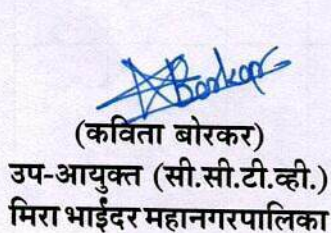 (कविता बोरकर)
उप-आयुक्त (सी.सी.टी.व्ही.)
मिरा भाईंदर महानगरपालिका